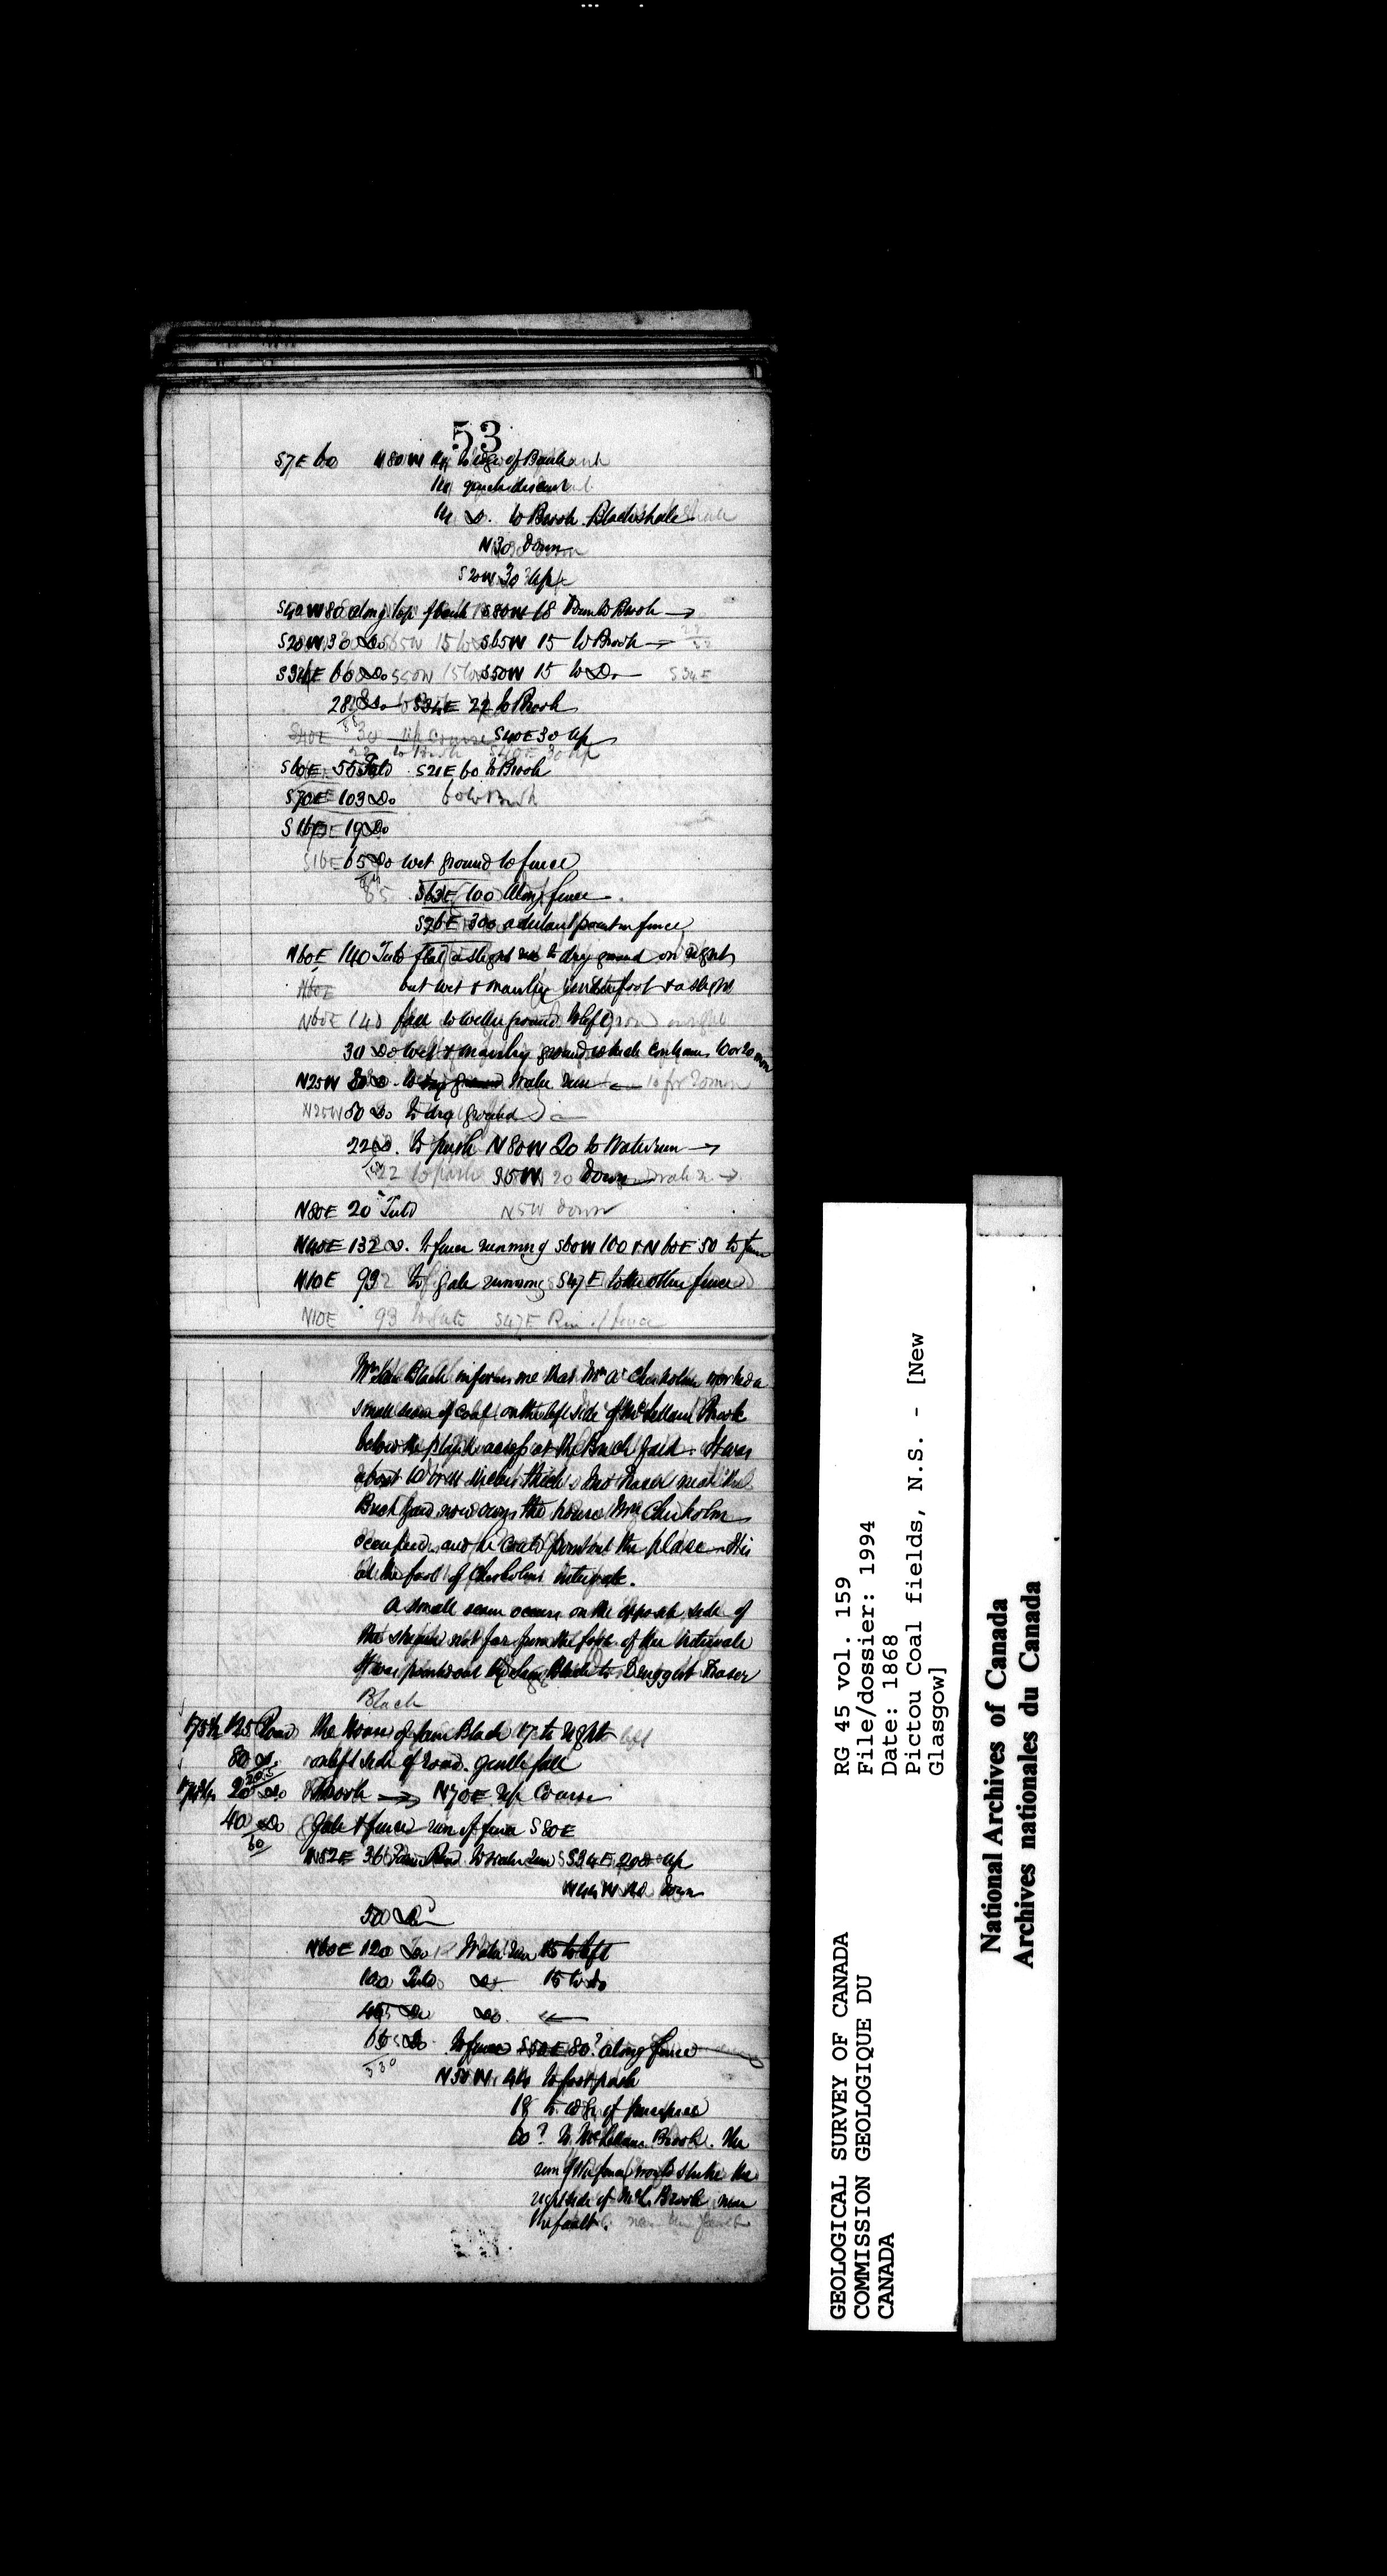 53
S7E 60 N80W 14 to edge of Bank
14 quick descent
14 Do. to Brook. Black shale
N30 Down
S20W 30 Up
S40W 80 along top of bank S80W 18 Down to Brook →
S20W 30 Do S65W 15 to Brook →
S34E 66 Do S50W 15 to Do
28 Do S34E 22 to Brook
S40E 30 Up
S60E 55 Field S21E 60 to Brook
S70E 103 Do
S16E 19 Do
S16E 65 Do wet ground to fence
S63E 100 Along fence
S76E 300 a distant point in fence
N60E 140 Field flat a slight rise to dry ground on right
N60E but wet & marshy under foot & a slight
N60E 140 fall to wetter ground to left
30 Do wet & marshy ground which continues 10 or 20 more
N25W 80 Do. to Water run ←
N25W 50 Do to dry ground
22 Do. to path N80W 20 to Water run →
S5W 20 Down
N80E 20 Field N5W Down
N40E 132 Do. to fence running S60W 100 & N60E 50 to fence
N10E 93 to gate running S47E to the other fence
N10E 93 to Gate S47E Run of fence
Black informs me that Chisholm worked a
small seam of coal on the left side of McLellans Brook
below the plank across at the Brick Yard. It was
about 10 or 12 inches thick. Fraser near the
Brick Yard now owns the house Chisholm
occupied, and he could point out the place. It is
at the foot of Chisholms intervale.
A small seam occurs on the opposite side of
the stream not far from the foot of the Intervale
It was pointed out by Black to Druggist Fraser
Black
125 Road The House of Black 17 to right left
80 Do. on left side of road. gentle fall
20 Do Brook → N70E Up Course
40 Do Gate & fence run of fence S80E
60
N52E 36 Farm Road to water run S34E 200 Up
N44W Down
50 Do
N60E 120 Do Water run 15 to left
100 Field Do. 15 to Do
45 Do Do. ←
65 Do. to fence S50E 80? along fence
330
N50W 44 to foot path
18 to edge of precipice
60? to McLellans Brook. The
run of the fence would strike the
right side of McL. Brook near
the fault.
GEOLOGICAL SURVEY OF CANADA
COMMISSION GEOLOGIQUE DU
CANADA
RG 45 vol. 159
File/dossier: 1994
Date: 1868
Pictou Coal fields, N.S. - [New
Glasgow]
National Archives of Canada
Archives nationales du Canada